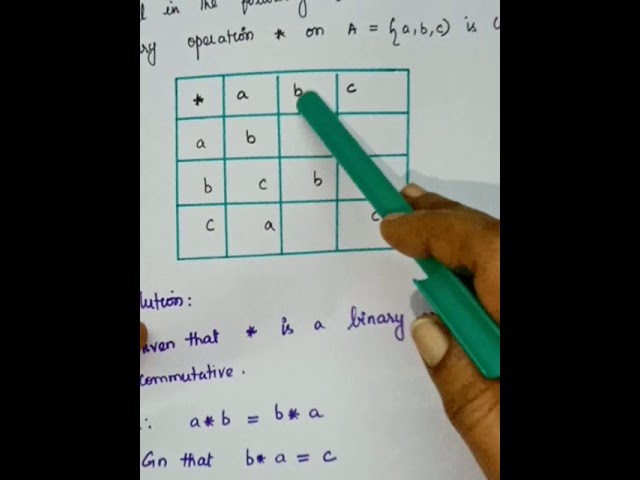 in the
operation * on A = {a,b,c) is
* a b c
a b
b c b
c a c
lution:
iven that * is a binary
commutative.
∴ a*b = b*a
Gn that b*a = c